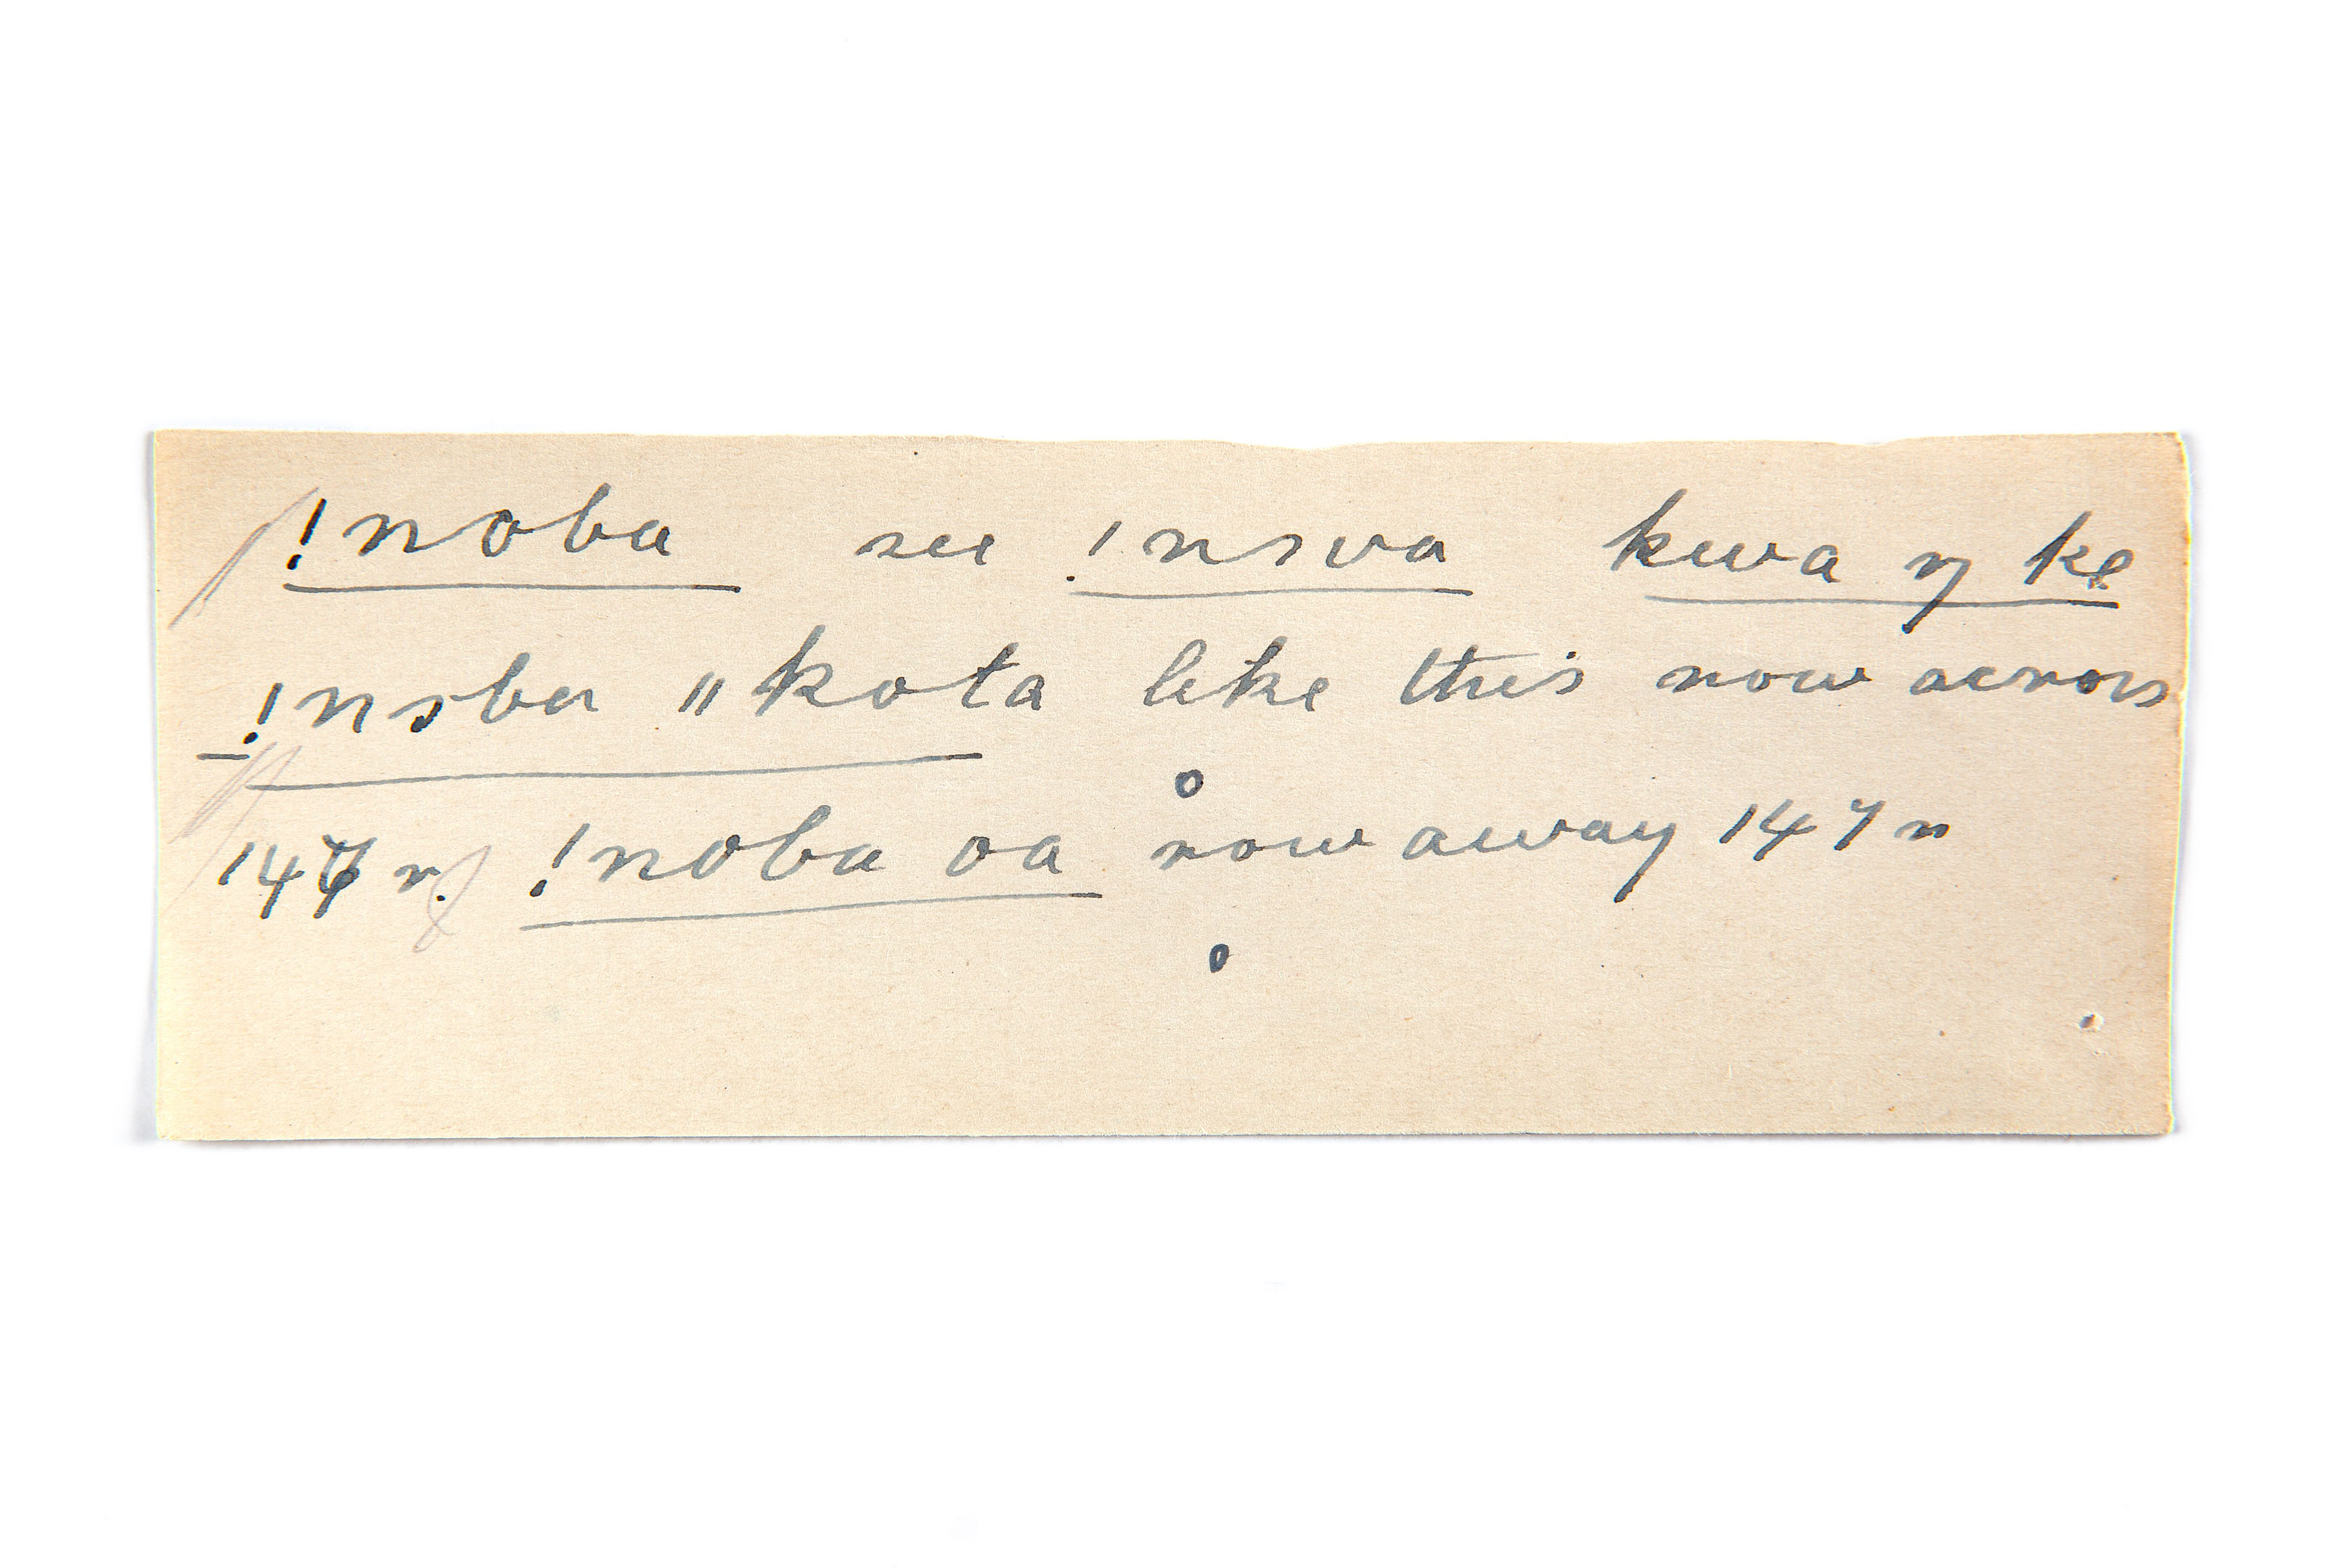 !noba see !nsva kwa ŋ ke
!nsba ॥kota like this row across
147 n. !noba oa row away 147 n